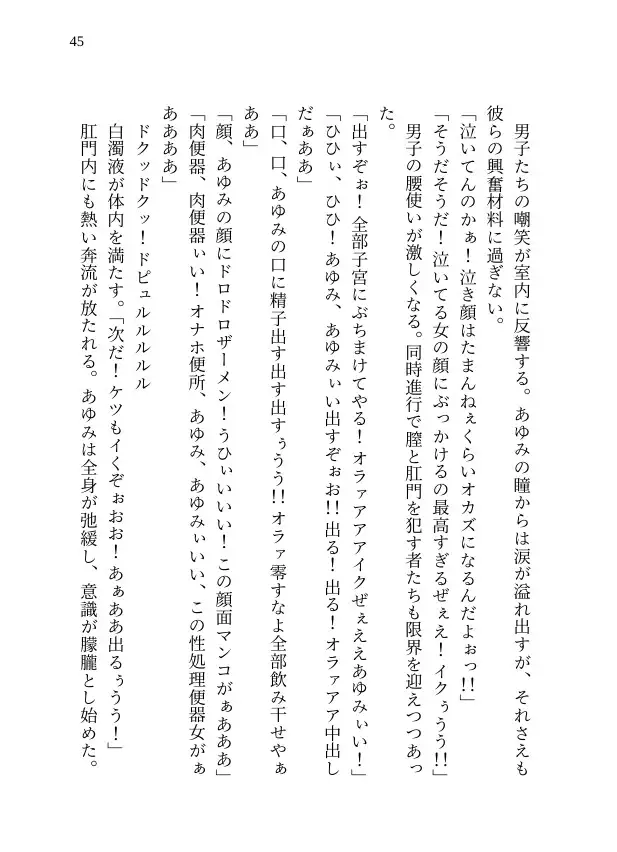 45
男子たちの嘲笑が室内に反響する。あゆみの瞳からは涙が溢れ出すが、それさえも
彼らの興奮材料に過ぎない。
「泣いてんのかぁ！泣き顔はたまんねぇくらいオカズになるんだよぉっ!!」
「そうだそうだ！泣いてる女の顔にぶっかけるの最高すぎるぜぇえ！イクぅうう!!」
男子の腰使いが激しくなる。同時進行で膣と肛門を犯す者たちも限界を迎えつつあっ
た。
「出すぞぉ！全部子宮にぶちまけてやる！オラァアアアイクぜぇええあゆみぃい！」
「ひひぃ、ひひ！あゆみ、あゆみぃい出すぞぉお!!出る！出る！オラァアア中出し
だぁああ」
「口、口、あゆみの口に精子出す出す出すぅうう!!オラァ零すなよ全部飲み干せやぁ
ああ」
「顔、あゆみの顔にドロドロザーメン！うひぃいいい！この顔面マンコがぁあああ」
「肉便器、肉便器ぃい！オナホ便所、あゆみ、あゆみぃいい、この性処理便器女がぁ
ああああ」
ドクッドクッ！ドピュルルルルル
白濁液が体内を満たす。「次だ！ケツもイくぞぉおお！あぁああ出るぅうう！」
肛門内にも熱い奔流が放たれる。あゆみは全身が弛緩し、意識が朦朧とし始めた。